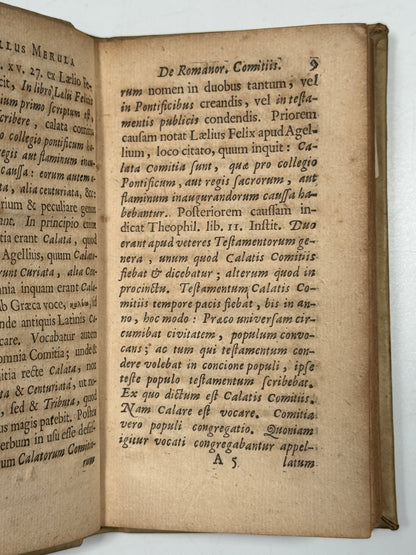 LLUS MERULA
. xv. 27. ex Lælio fe-
cit, In libro Lælii Felicis
primo scriptum est,
scribere, calata comi-
ollegio pontificum ha-
egis aut flaminum inau-
caussa: eorum autem
ta, alia centuriata, &c:
erum & peculiare genus
rant. In principio enim
t Calata, postea quum
Agellius, quum Calata
runt Curiata, alia Cen-
mnia inquam erant Ca-
Calare.
Ab Græca voce,
nde antiquis Latinis ca-
care. Vocabatur autem
omnia Comitia; unde &
itia recte Calata, non
ta & Centuriata, ut no-
, sed & Tributa, quod
us magis patebit. Postea
erbum in usu esse desii-
um Calatorum Comitio-
rum
De Romanor. Comitiis. 9
rum nomen in duobus tantum, vel
in Pontificibus creandis, vel in testa-
mentis publicis condendis. Priorem
causam notat Lælius Felix apud Agel-
lium, loco citato, quum inquit: Ca-
lata Comitia sunt, quæ pro collegio
Pontificum, aut regis sacrorum, aut
flaminum inaugurandorum causa ha-
bebantur. Posteriorem caussam in-
dicat Theophil. lib. 11. Instit. Duo
erant apud veteres Testamentorum ge-
nera, unum quod Calatis Comitiis
fiebat & dicebatur; alterum quod in
procinctu. Testamentum Calatis Co-
mitiis tempore pacis fiebat, bis in an-
no, hoc modo: Præco universam cir-
cumibat civitatem, populum convo-
cans; ac tum qui testamentum con-
dere volebat in concione populi, ipse
teste populo testamentum scribebat.
Ex quo dictum est Calatis Comitiis.
Nam Calare est vocare. Comitia
vero populi congregatio. Quoniam
igitur vocati congregabantur appel-
A 5 latum